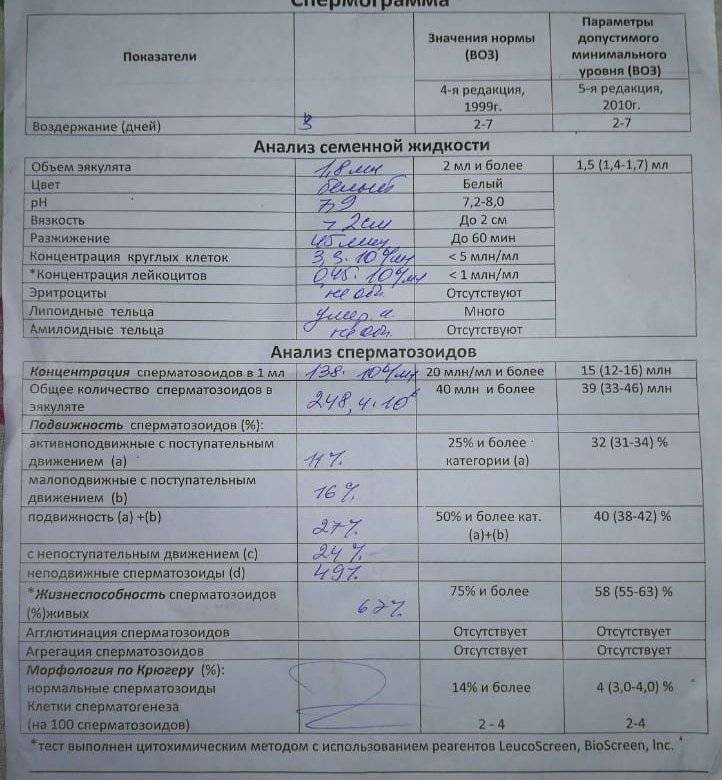 Спермограмма
Показатели Значения нормы (ВОЗ) Параметры допустимого минимального уровня (ВОЗ)
4-я редакция, 1999г. 5-я редакция, 2010г.
Воздержание (дней) 3 2-7 2-7
Анализ семенной жидкости
Объем эякулята 1,8 мл 2 мл и более 1,5 (1,4-1,7) мл
Цвет белый Белый
pH 7,9 7,2-8,0
Вязкость 2 см До 2 см
Разжижение 45 мин До 60 мин
Концентрация круглых клеток < 5 млн/мл
*Концентрация лейкоцитов < 1 млн/мл
Эритроциты не обн. Отсутствуют
Липоидные тельца Много
Амилоидные тельца не обн. Отсутствуют
Анализ сперматозоидов
Концентрация сперматозоидов в 1 мл 20 млн/мл и более 15 (12-16) млн
Общее количество сперматозоидов в эякуляте 248,4·10⁶ 40 млн и более 39 (33-46) млн
Подвижность сперматозоидов (%):
активноподвижные с поступательным движением (a) 11% 25% и более категории (a) 32 (31-34) %
малоподвижные с поступательным движением (b) 16%
подвижность (a) +(b) 27% 50% и более кат. (a)+(b) 40 (38-42) %
с непоступательным движением (c) 24%
неподвижные сперматозоиды (d) 49%
*Жизнеспособность сперматозоидов (%)живых 75% и более 58 (55-63) %
Агглютинация сперматозоидов Отсутствует Отсутствует
Агрегация сперматозоидов Отсутствует Отсутствует
Морфология по Крюгеру (%):
нормальные сперматозоиды 14% и более 4 (3,0-4,0) %
Клетки сперматогенеза
(на 100 сперматозоидов) 2 - 4 2-4
*тест выполнен цитохимическим методом с использованием реагентов LeucoScreen, BioScreen, Inc.